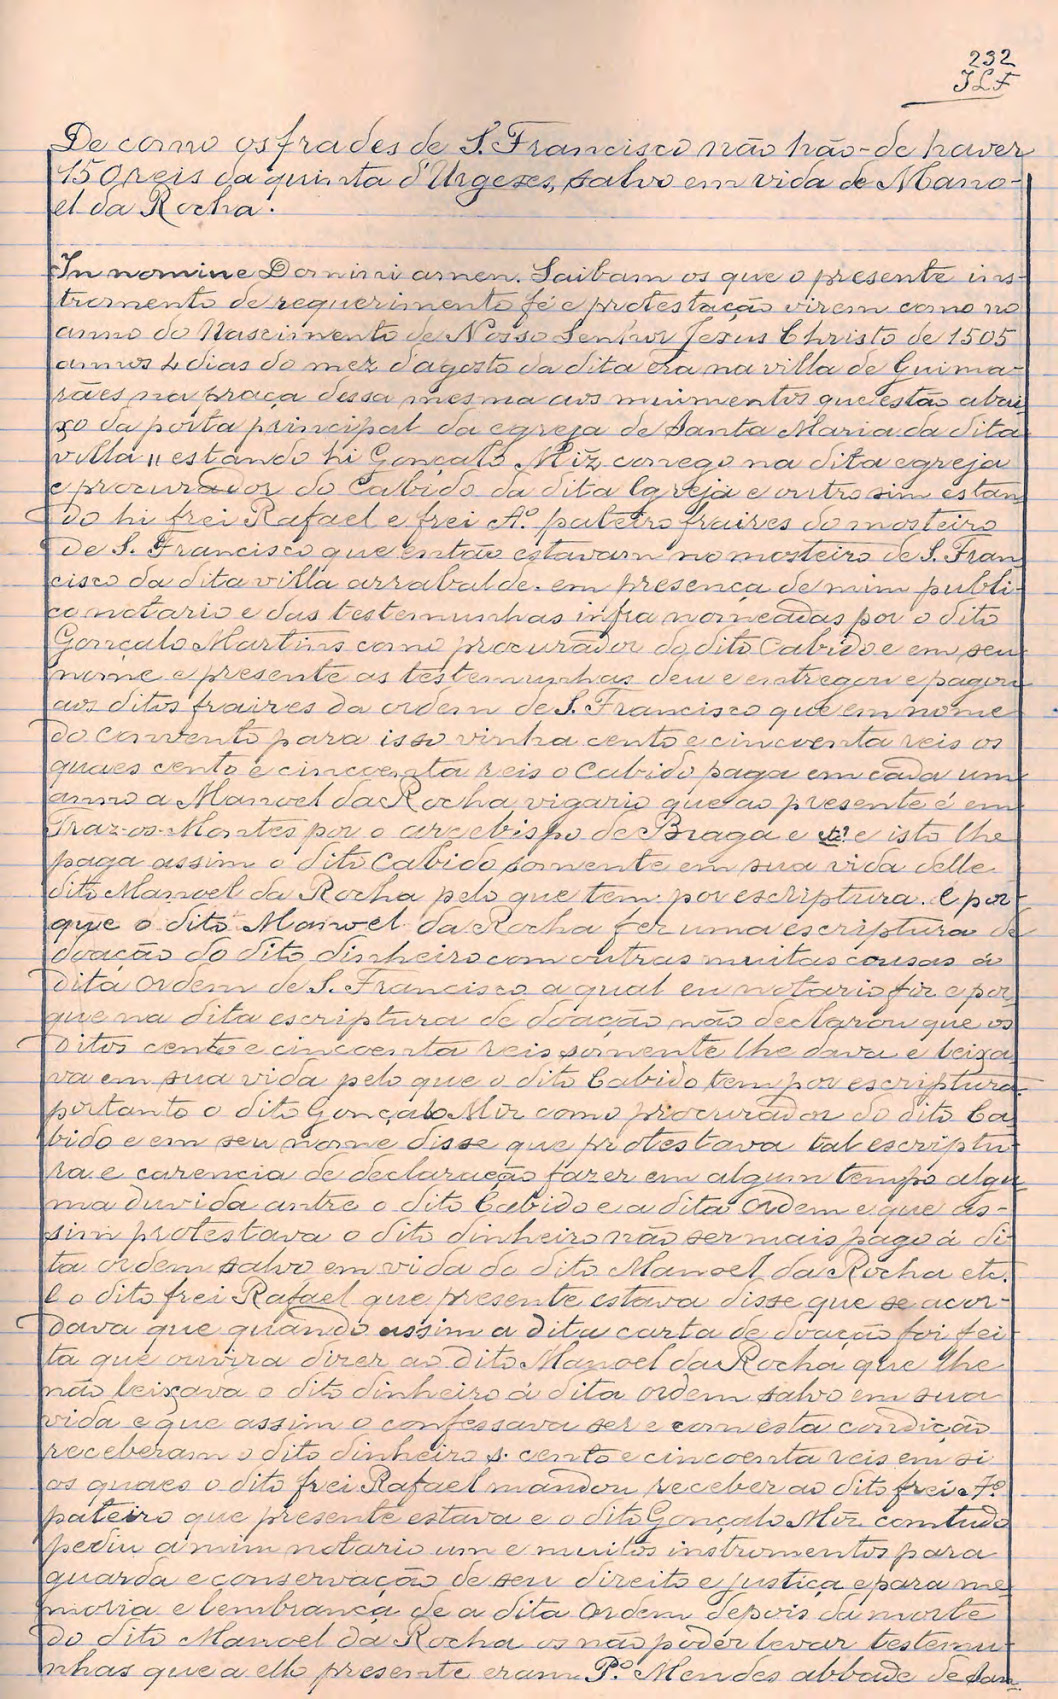 232
JLF
De como os frades de S. Francisco não hão-de haver
150 reis da quinta d'Urgeses, salvo em vida de Mano-
el da Rocha.
In nomine Domini amen. Saibam os que o presente ins-
tromento de requerimento fé e protestação virem como no
anno do Nascimento de Nosso Senhor Jesus Christo de 1505
annos 4 dias do mez d'agosto da dita era na villa de Guima-
rães na praça dessa mesma aos muimentos que estão abai-
xo da porta principal da egreja de Santa Maria da dita
villa " estando hi Gonçalo Miz conego na dita egreja
e procurador do Cabido da dita Egreja e outro sim estan
do hi frei Rafael e frei A.º pateiro fraires do mosteiro
de S. Francisco que então estavam no mosteiro de S. Fran
cisco da dita villa arrabalde em presença de mim publi-
co notario e das testemunhas infra nomeadas por o dito
Gonçalo Martins como procurador do dito Cabido e em seu
nome e presente as testemunhas deu e entregou e pagou
aos ditos fraires da ordem de S. Francisco que em nome
do convento para isso vinha cento e cincoenta reis os
quaes cento e cincoenta reis o Cabido paga em cada um
anno a Manoel da Rocha vigario que ao presente é em
Traz-os-Montes por o arcebispo de Braga e e isto lhe
paga assim o dito Cabido somente em sua vida delle
dito Manoel da Rocha pelo que tem por escriptura. E por-
que o dito Manoel da Rocha fez uma escriptura de
doação do dito dinheiro com outras muitas cousas á
dita Ordem de S. Francisco a qual eu notario fiz e por
que na dita escriptura de doação não declarou que os
ditos cento e cincoenta reis somente lhe dava e leixa
va em sua vida pelo que o dito Cabido tem por escriptura
portanto o dito Gonçalo Miz como procurador do dito Ca
bido e em seu nome disse que protestava tal escriptu-
ra e carencia de declaração fazer em algum tempo algu
ma duvida antre o dito Cabido e a dita Ordem e que as-
sim protestava o dito dinheiro não ser mais pago á di-
ta ordem salvo em vida do dito Manoel da Rocha etc.
E o dito frei Rafael que presente estava disse que se acor-
dava que quando assim a dita carta de doação foi fei-
ta que ouvira dizer ao dito Manoel da Rocha que lhe
não leixava o dito dinheiro á dita ordem salvo em sua
vida e que assim o confessava ser e com esta condição
receberam o dito dinheiro s. cento e cincoenta reis em si
os quaes o dito frei Rafael mandou receber ao dito frei A.º
pateiro que presente estava e o dito Gonçalo Miz com tudo
pediu a mim notario um e muitos instromentos para
guarda e conservação de seu direito e justiça e para me
moria e lembrança de a dita Ordem depois da morte
do dito Manoel da Rocha os não poder levar testemu-
nhas que a ello presente eram P.º Mendes abbade de San